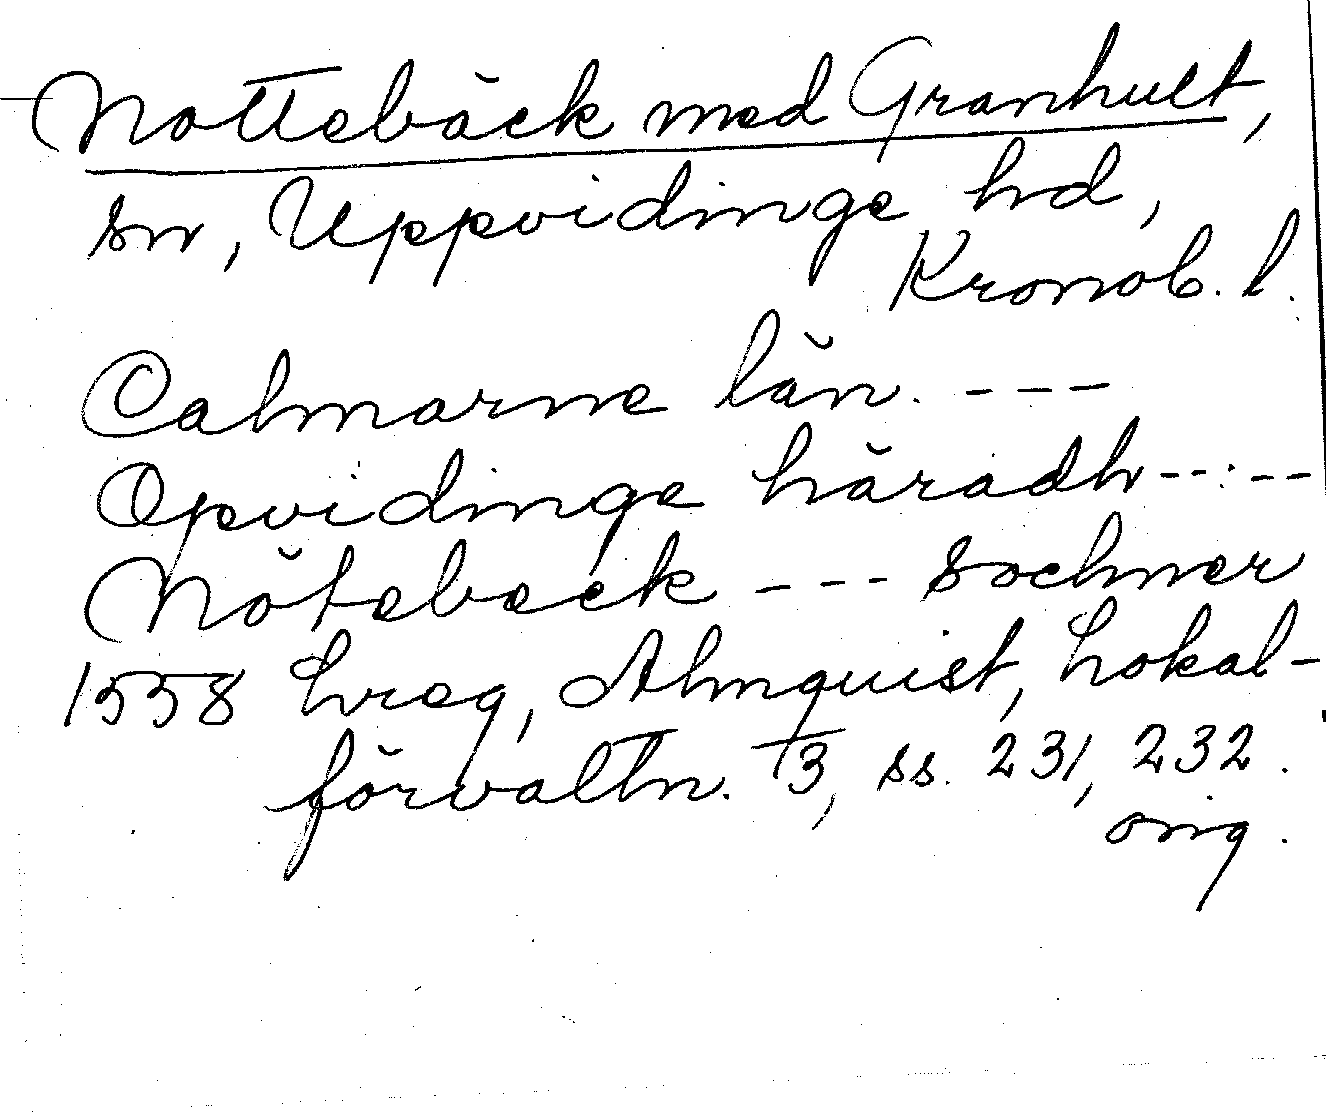 Nottebäck med Granhult,
sn, Uppvidinge hd,
Kronob. l.
Calmarne län. ---
Opvidinge häradh -----
Nötebeck --- sochner
1558 hreg, Almquist, Lokal-
förvaltn. 13, ss. 231, 232.
orig.